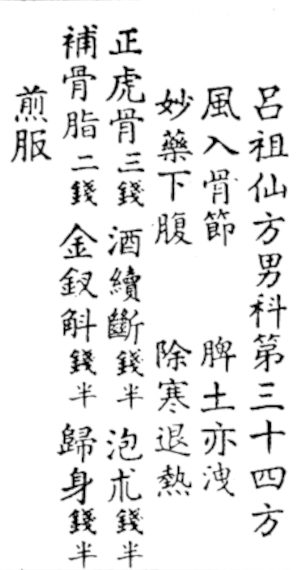 呂祖仙方男科第三十四方
風入骨節 脾土亦洩
妙藥下腹 除寒退熱
正虎骨三錢 酒續斷錢半 泡朮錢半
補骨脂二錢 金釵斛錢半 歸身錢半
煎服